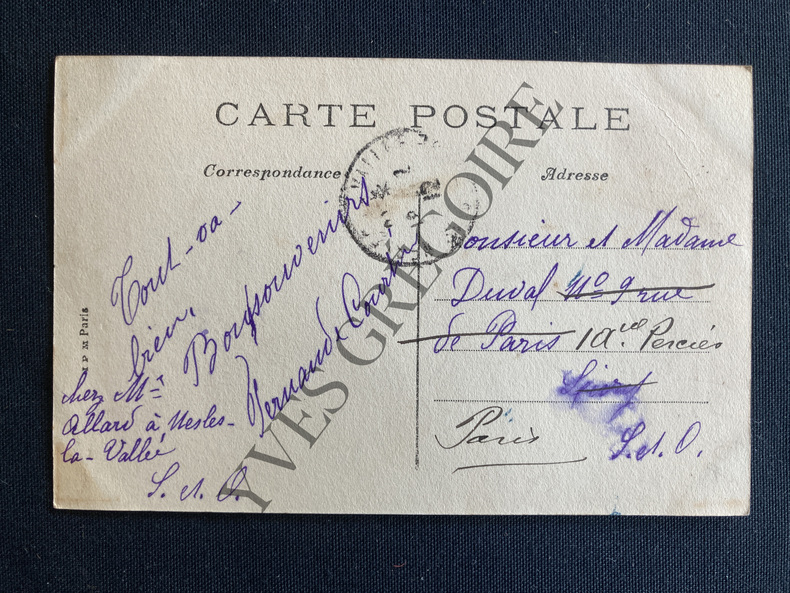 CARTE POSTALE
Correspondance
Adresse
Tout-va-
bien,
Bons souvenirs
Fernande
chez Mr
Allard à Nesles-
la-Vallée
S. et O.
Monsieur et Madame
Duval No 9 rue
de Paris 1 Ave Percier
Paris
S. et O.
M Paris
YVES GREGOIRE